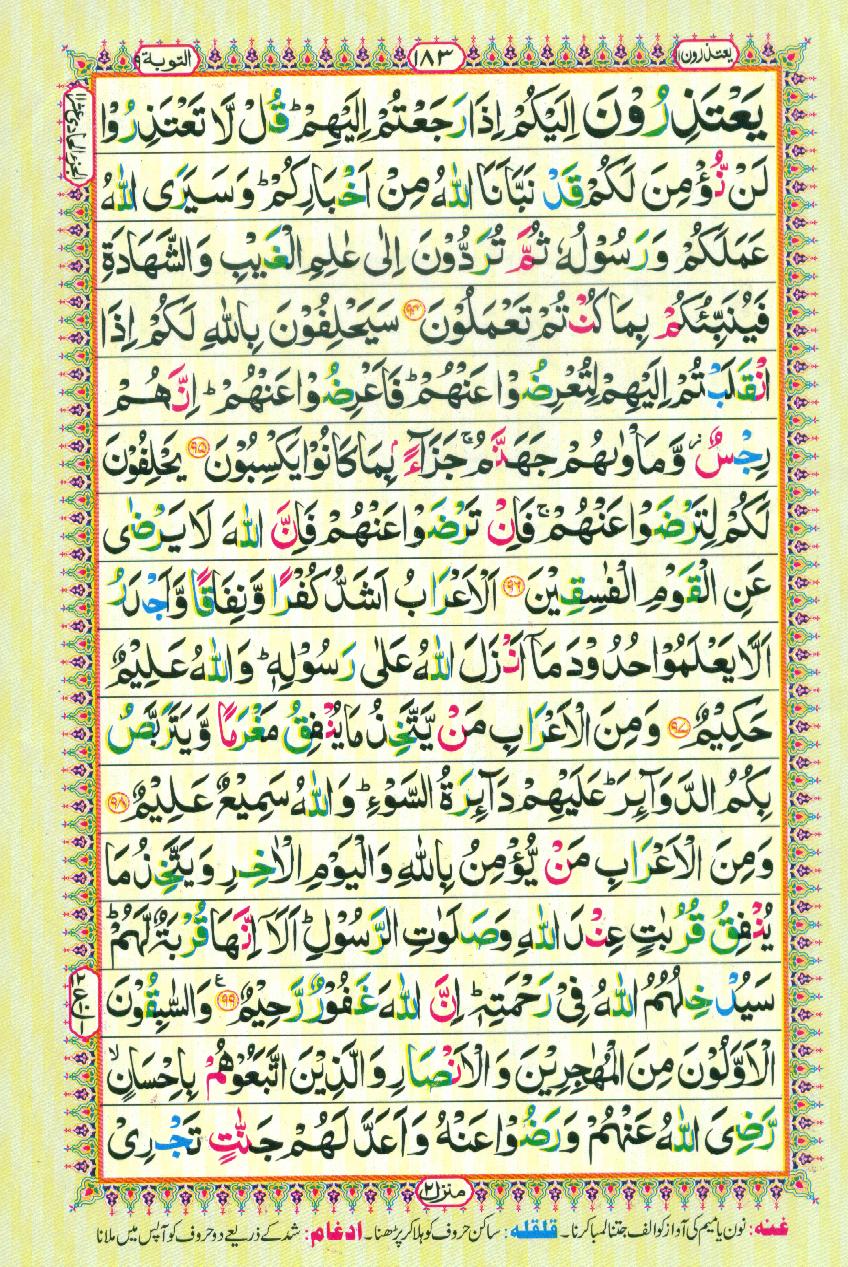 یعتذرون ۱۱
۱۸۳
التوبة ۹
یَعْتَذِرُوْنَ اِلَیْكُمْ اِذَا رَجَعْتُمْ اِلَیْهِمْ ؕ قُلْ لَّا تَعْتَذِرُوْا
لَنْ نُّؤْمِنَ لَكُمْ قَدْ نَبَّاَنَا اللّٰهُ مِنْ اَخْبَارِكُمْ ؕ وَ سَیَرَی اللّٰهُ
عَمَلَكُمْ وَ رَسُوْلُهٗ ثُمَّ تُرَدُّوْنَ اِلٰی عٰلِمِ الْغَیْبِ وَ الشَّهَادَةِ
فَیُنَبِّئُكُمْ بِمَا كُنْتُمْ تَعْمَلُوْنَ ۹۴ سَیَحْلِفُوْنَ بِاللّٰهِ لَكُمْ اِذَا
انْقَلَبْتُمْ اِلَیْهِمْ لِتُعْرِضُوْا عَنْهُمْ ؕ فَاَعْرِضُوْا عَنْهُمْ ؕ اِنَّهُمْ
رِجْسٌ ؗ وَّ مَاْوٰىهُمْ جَهَنَّمُ ۚ جَزَآءًۢ بِمَا كَانُوْا یَكْسِبُوْنَ ۹۵ یَحْلِفُوْنَ
لَكُمْ لِتَرْضَوْا عَنْهُمْ ۚ فَاِنْ تَرْضَوْا عَنْهُمْ فَاِنَّ اللّٰهَ لَا یَرْضٰی
عَنِ الْقَوْمِ الْفٰسِقِیْنَ ۹۶ اَلْاَعْرَابُ اَشَدُّ كُفْرًا وَّ نِفَاقًا وَّ اَجْدَرُ
اَلَّا یَعْلَمُوْا حُدُوْدَ مَاۤ اَنْزَلَ اللّٰهُ عَلٰی رَسُوْلِهٖ ؕ وَ اللّٰهُ عَلِیْمٌ
حَكِیْمٌ ۹۷ وَ مِنَ الْاَعْرَابِ مَنْ یَّتَّخِذُ مَا یُنْفِقُ مَغْرَمًا وَّ یَتَرَبَّصُ
بِكُمُ الدَّوَآىِٕرَ ؕ عَلَیْهِمْ دَآىِٕرَةُ السَّوْءِ ؕ وَ اللّٰهُ سَمِیْعٌ عَلِیْمٌ ۹۸
وَ مِنَ الْاَعْرَابِ مَنْ یُّؤْمِنُ بِاللّٰهِ وَ الْیَوْمِ الْاٰخِرِ وَ یَتَّخِذُ مَا
یُنْفِقُ قُرُبٰتٍ عِنْدَ اللّٰهِ وَ صَلَوٰتِ الرَّسُوْلِ ؕ اَلَاۤ اِنَّهَا قُرْبَةٌ لَّهُمْ ؕ
سَیُدْخِلُهُمُ اللّٰهُ فِیْ رَحْمَتِهٖ ؕ اِنَّ اللّٰهَ غَفُوْرٌ رَّحِیْمٌ ۹۹ ع وَ السّٰبِقُوْنَ
الْاَوَّلُوْنَ مِنَ الْمُهٰجِرِیْنَ وَ الْاَنْصَارِ وَ الَّذِیْنَ اتَّبَعُوْهُمْ بِاِحْسَانٍ ۙ
رَّضِیَ اللّٰهُ عَنْهُمْ وَ رَضُوْا عَنْهُ وَ اَعَدَّ لَهُمْ جَنّٰتٍ تَجْرِیْ
منزل ۲
غنه: نون یا میم کی آواز کو الف جتنا لمبا کرنا۔ قلقله: ساکن حروف کو ہلا کر پڑھنا۔ ادغام: شد کے ذریعے دو حروف کو آپس میں ملانا